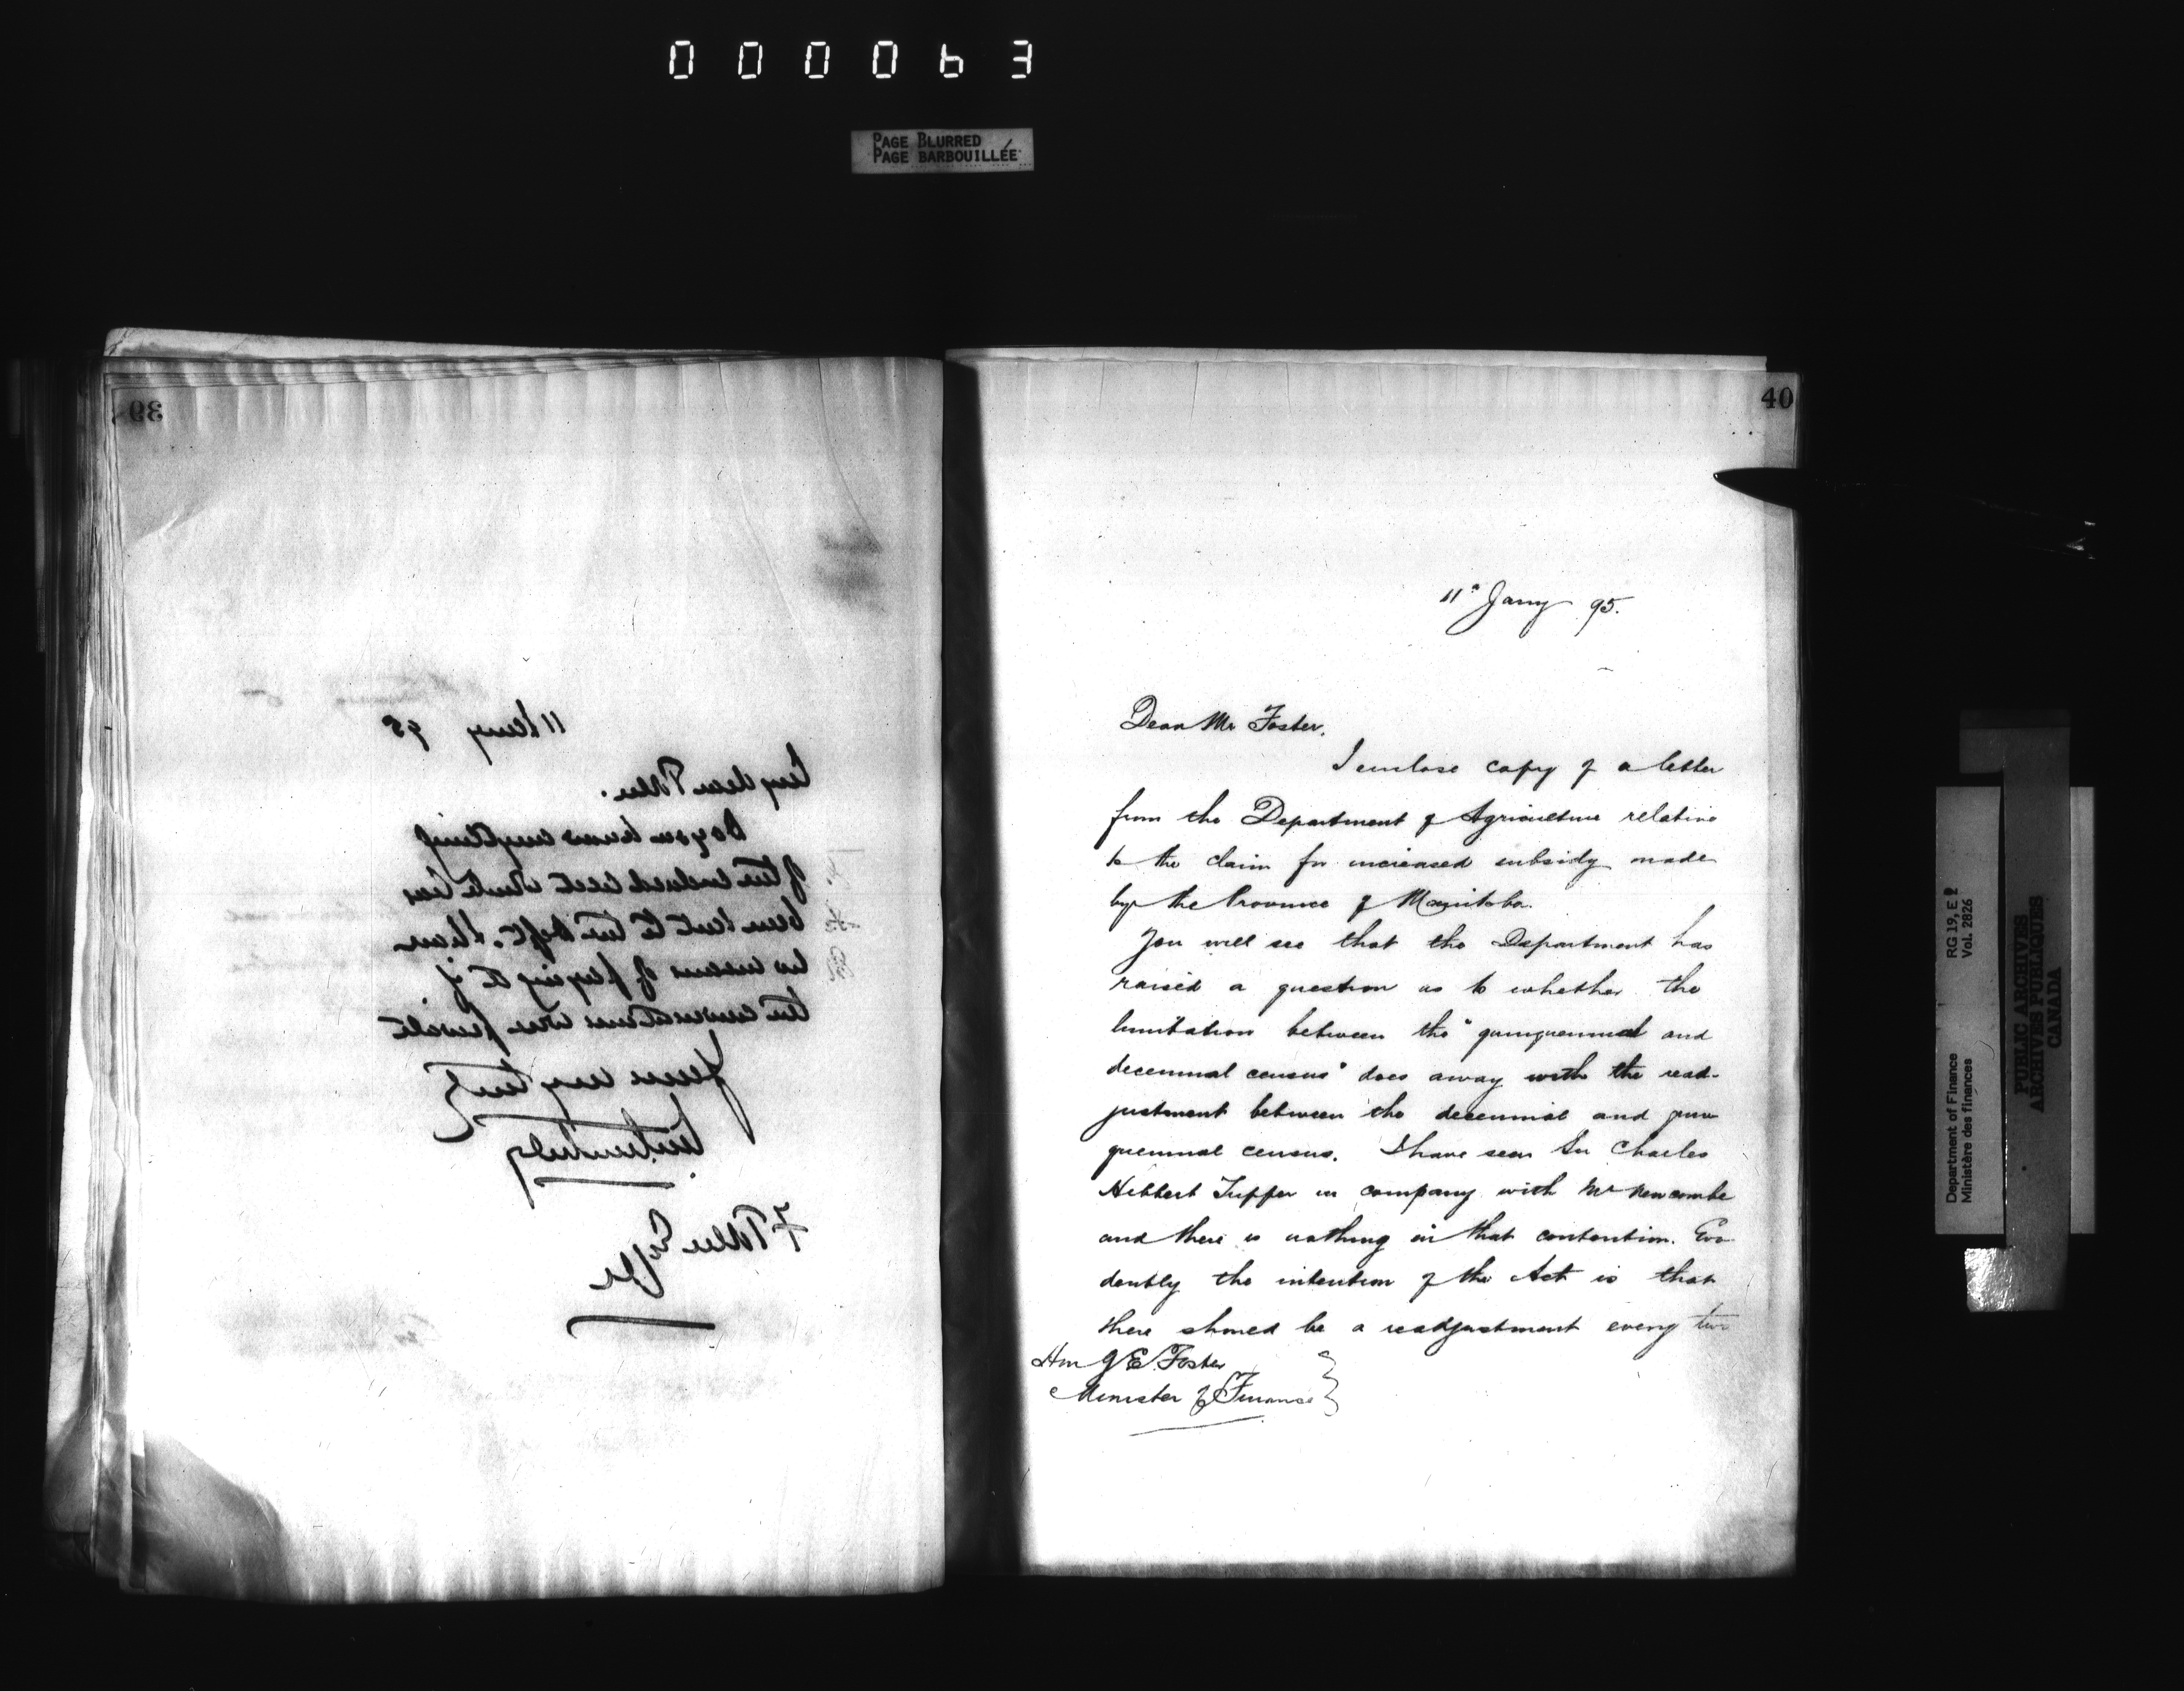 000063
PAGE BLURRED
PAGE BARBOUILLÉE
39
11 Jany 95
My dear
Do you know anything
of the enclosed which has
been sent to the Dept. I have
no means of replying to it
the were private
Yours very truly
F Esq
40
11th Jany 95.
Dear Mr Foster,
I enclose copy of a letter
from the Department of Agriculture relative
to the claim for increased subsidy made
by the Province of Manitoba.
You will see that the Department has
raised a question as to whether the
limitation between the "quinquennial and
decennial census" does away with the read-
justment between the decennial and quin
quennial census. I have seen Sir Charles
Hibbert Tupper in company with Mr Newcombe
and there is nothing in that contention. Evi
dently the intention of the Act is that
there should be a readjustment every two
Hon G E. Foster
Minister of Finance
Department of Finance
Ministère des finances
RG 19, E 2
Vol. 2826
PUBLIC ARCHIVES
ARCHIVES PUBLIQUES
CANADA